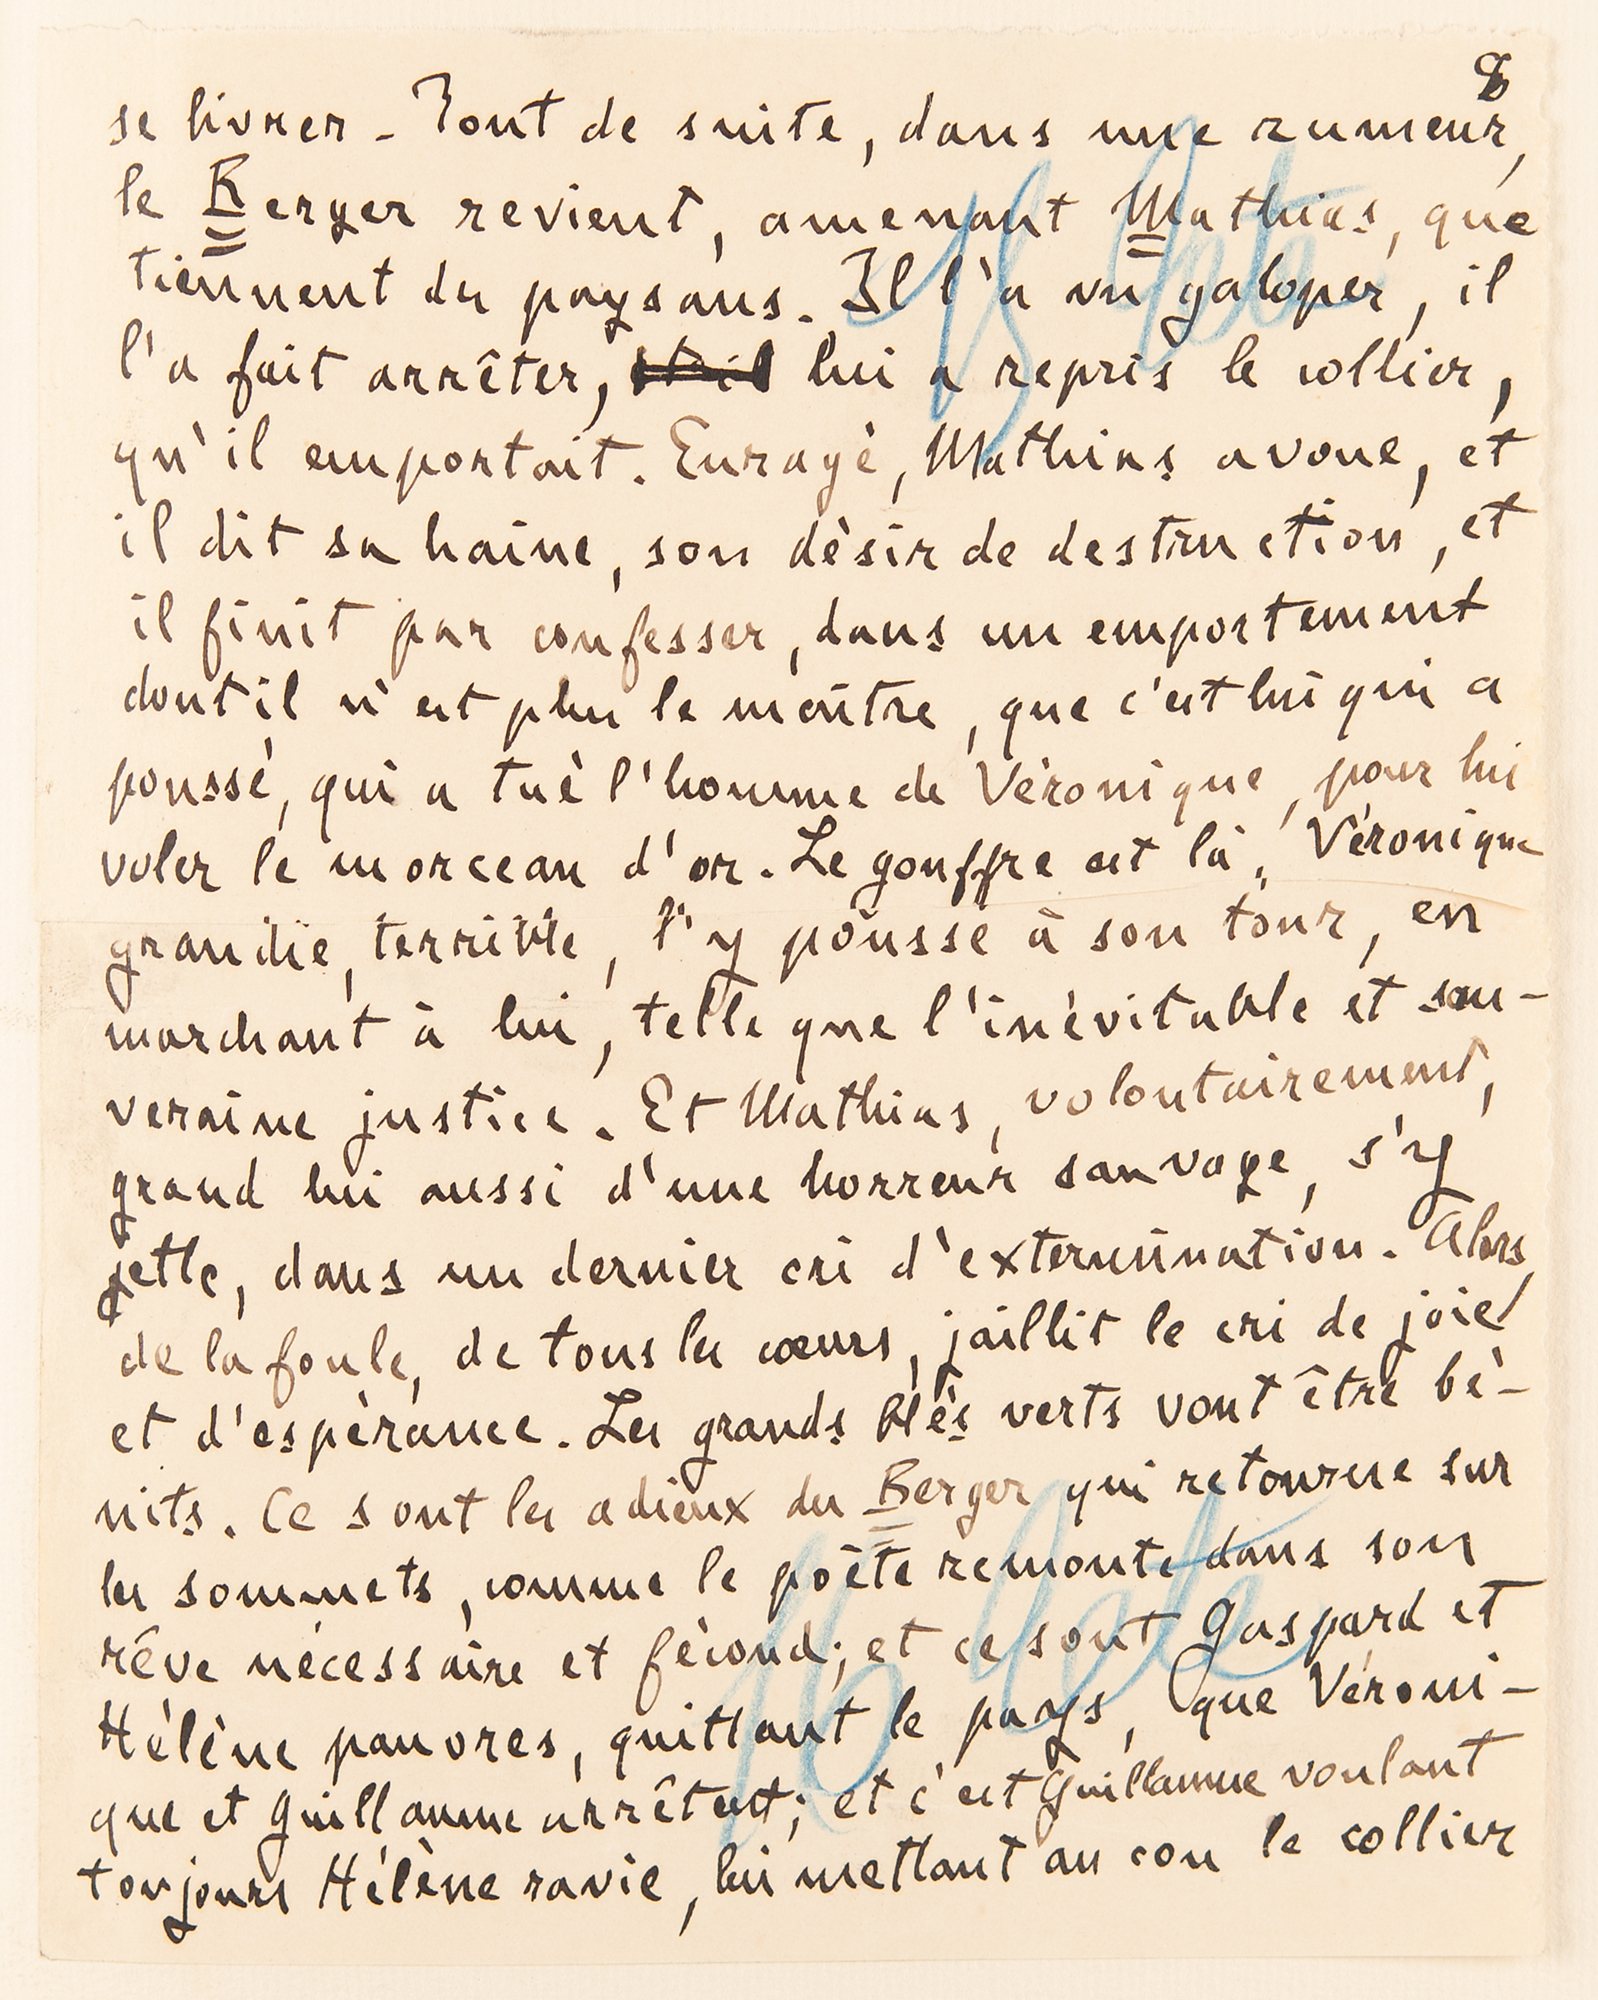 8
se livrer - Tout de suite, dans une rumeur,
le Berger revient, amenant Mathias, que
tiennent des paysans. Il l'a vu galoper, il
l'a fait arrêter, lui a repris le collier,
qu'il emportait. Enragé, Mathias avoue, et
il dit sa haine, son désir de destruction, et
il finit par confesser, dans un emportement
dont il n'est plus le maître, que c'est lui qui a
poussé, qui a tué l'homme de Véronique, pour lui
voler le morceau d'or. Le gouffre est là, Véronique
grandie, terrible, l'y pousse à son tour, en
marchant à lui, telle que l'inévitable et sou-
veraine justice. Et Mathias, volontairement,
grand lui aussi d'une horreur sauvage, s'y
jette, dans un dernier cri d'extermination. Alors,
de la foule, de tous les cœurs, jaillit le cri de joie
et d'espérance. Les grands blés verts vont être bé-
nits. Ce sont les adieux du Berger qui retourne sur
les sommets, comme le poète remonte dans son
rêve nécessaire et fécond; et ce sont Gaspard et
Hélène pauvres, quittant le pays, que Véroni-
que et Guillaume arrêtent; et c'est Guillaume voulant
toujours Hélène ravie, lui mettant au cou le collier